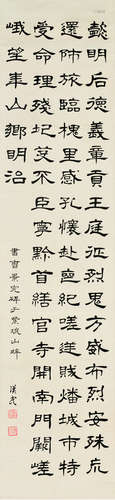 懿明后德義章貢王庭征鬼方威布烈安殊巟
還師旅臨槐里感孔懷赴喪紀嗟逆賊燔城市特
受命理殘圮芟不臣寧黔首繕官寺開南門闕嵯
峨望華山鄉明治
書曹景完碑于紫琅山畔